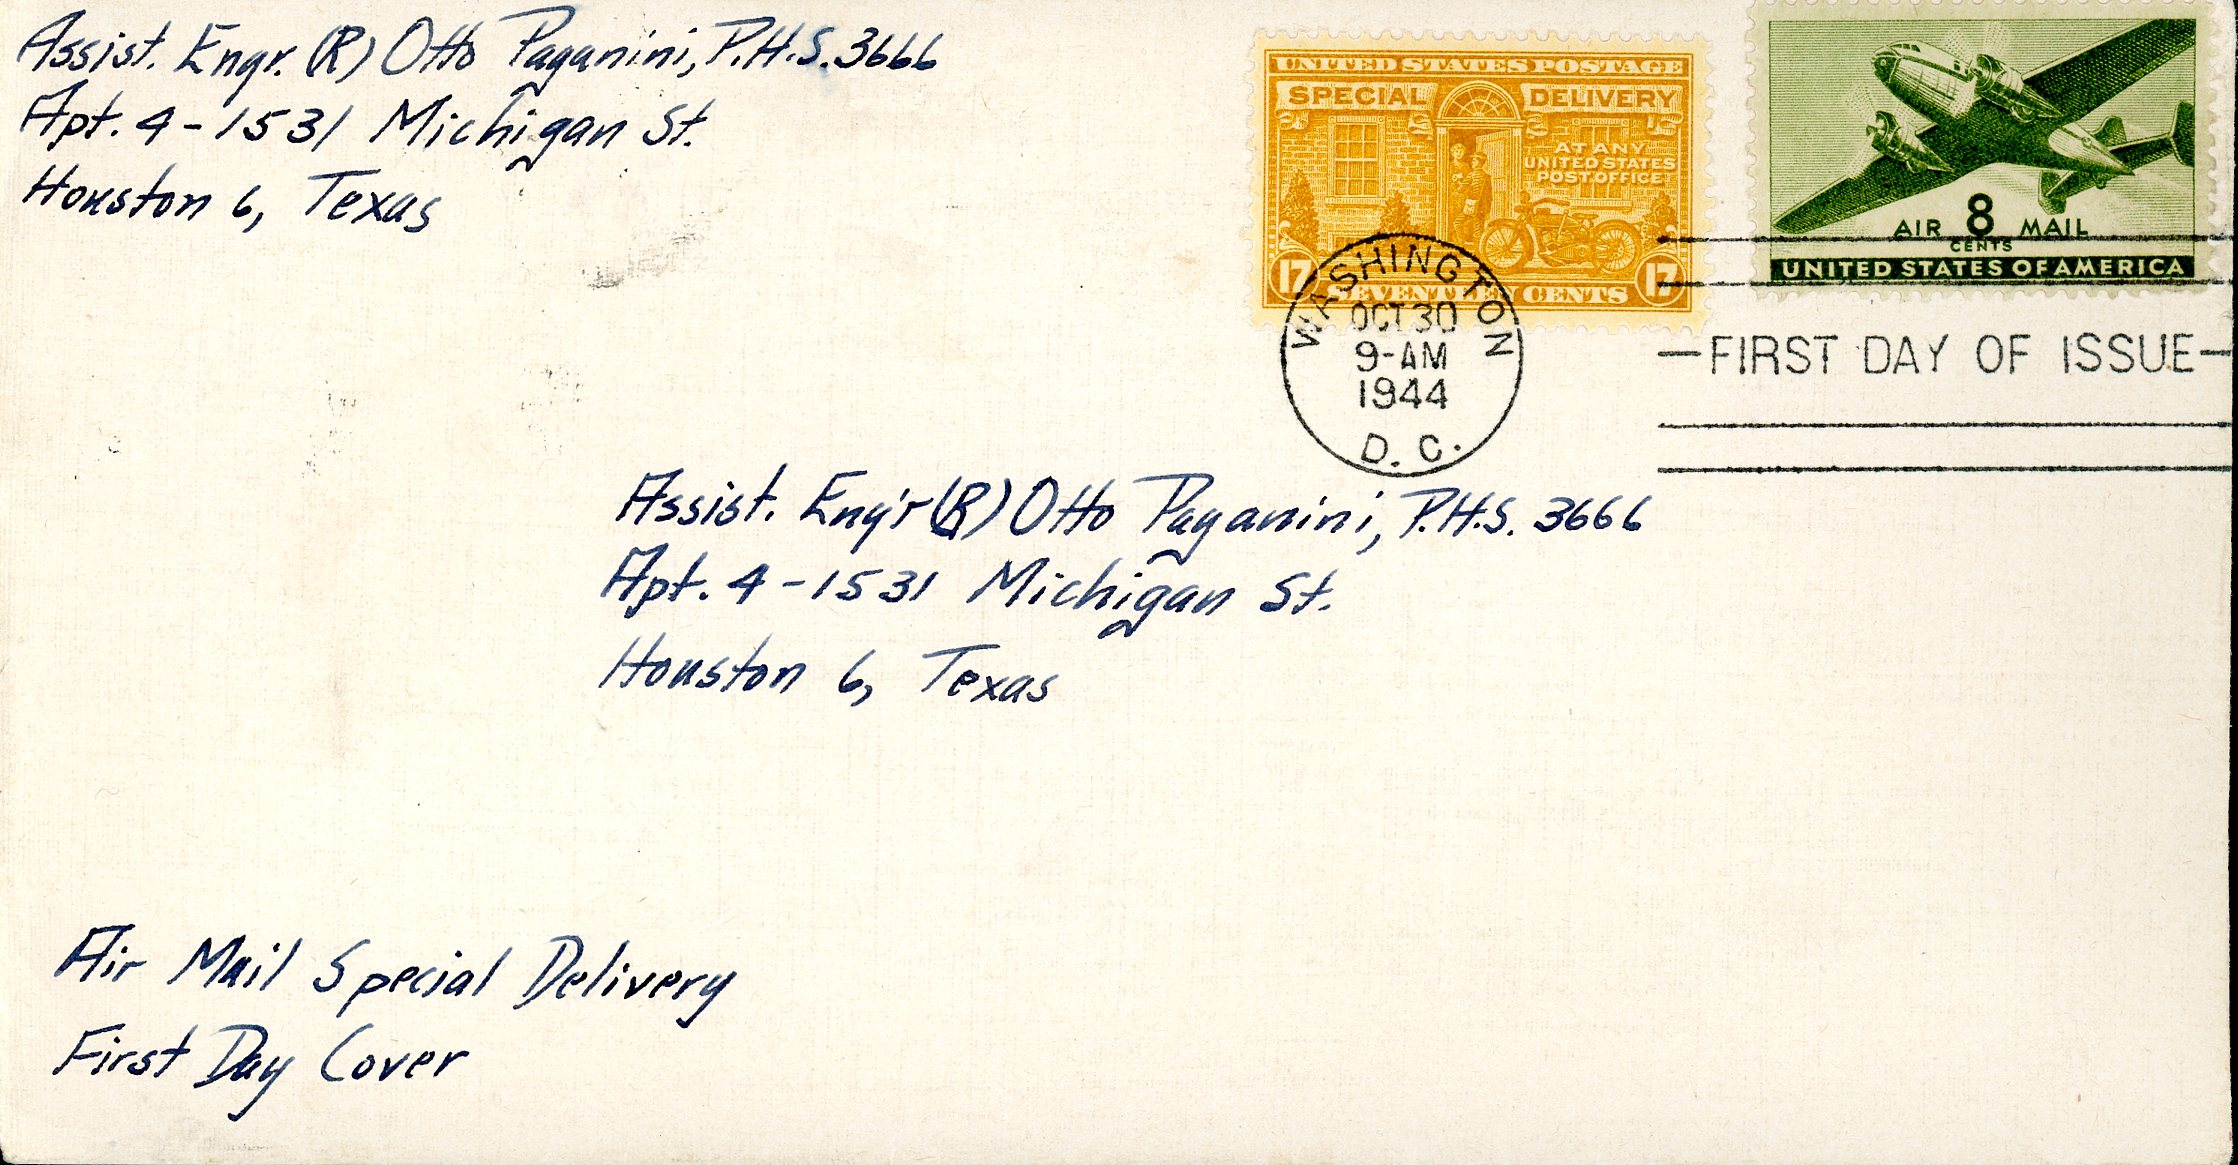 Assist. Engr. (R) Otto Paganini, P.H.S. 3666
Apt. 4 - 1531 Michigan St.
Houston 6, Texas
UNITED STATES POSTAGE
SPECIAL DELIVERY
AT ANY
UNITED STATES
POST OFFICE
17 SEVENTEEN CENTS 17
AIR 8 MAIL
CENTS
UNITED STATES OF AMERICA
WASHINGTON
OCT 30
9-AM
1944
D. C.
—FIRST DAY OF ISSUE—
Assist. Eng'r (R) Otto Paganini, P.H.S. 3666
Apt. 4 - 1531 Michigan St.
Houston 6, Texas
Air Mail Special Delivery
First Day Cover